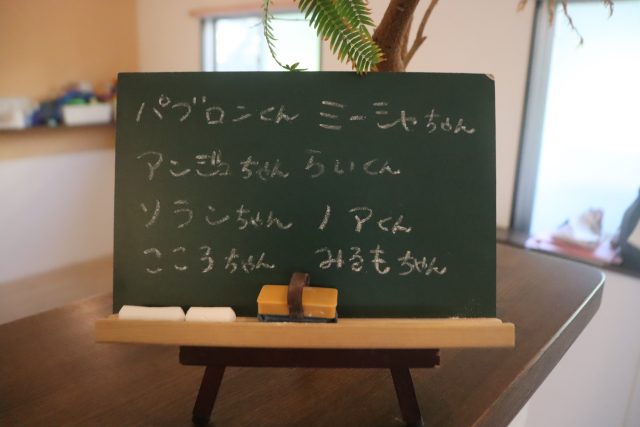 パブロンくん ミーシャちゃん
アンジュちゃん らいくん
ソランちゃん ノアくん
こころちゃん みるもちゃん